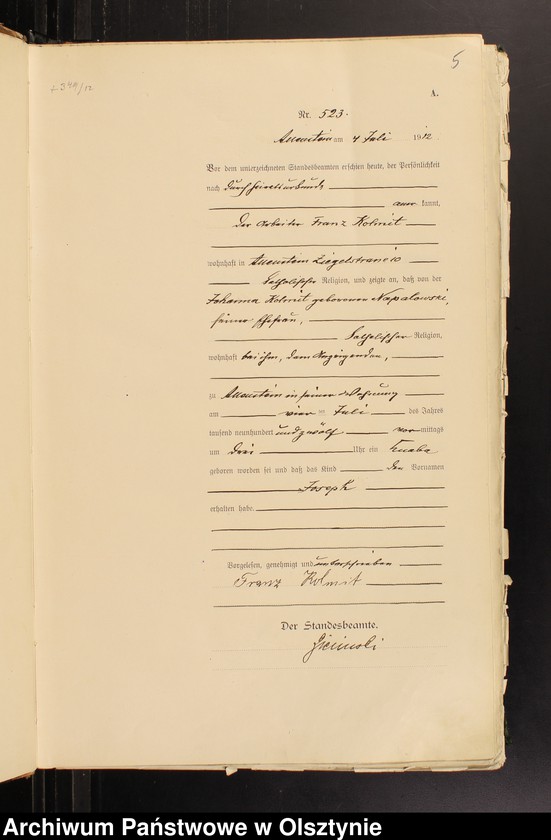 5
A.
Nr. 523.
Allenstein am 4 Juli 1912
Vor dem unterzeichneten Standesbeamten erschien heute, der Persönlichkeit
nach durch Heiratsurkunde
aner kannt,
der Arbeiter Franz Kolmit
wohnhaft in Allenstein Ziegelstrasse 10
katholischer Religion, und zeigte an, daß von der
Johanna Kolmit geborenen Napalowski,
seiner Ehefrau,
katholischer Religion,
wohnhaft bei ihm, dem Anzeigenden,
zu Allenstein in seiner Wohnung
am vier ten Juli des Jahres
tausend neunhundert und zwölf vor mittags
um drei Uhr ein Knabe
geboren worden sei und daß das Kind den Vornamen
Joseph
erhalten habe.
Vorgelesen, genehmigt und unterschrieben
Franz Kolmit
Der Standesbeamte.
Archiwum Państwowe w Olsztynie